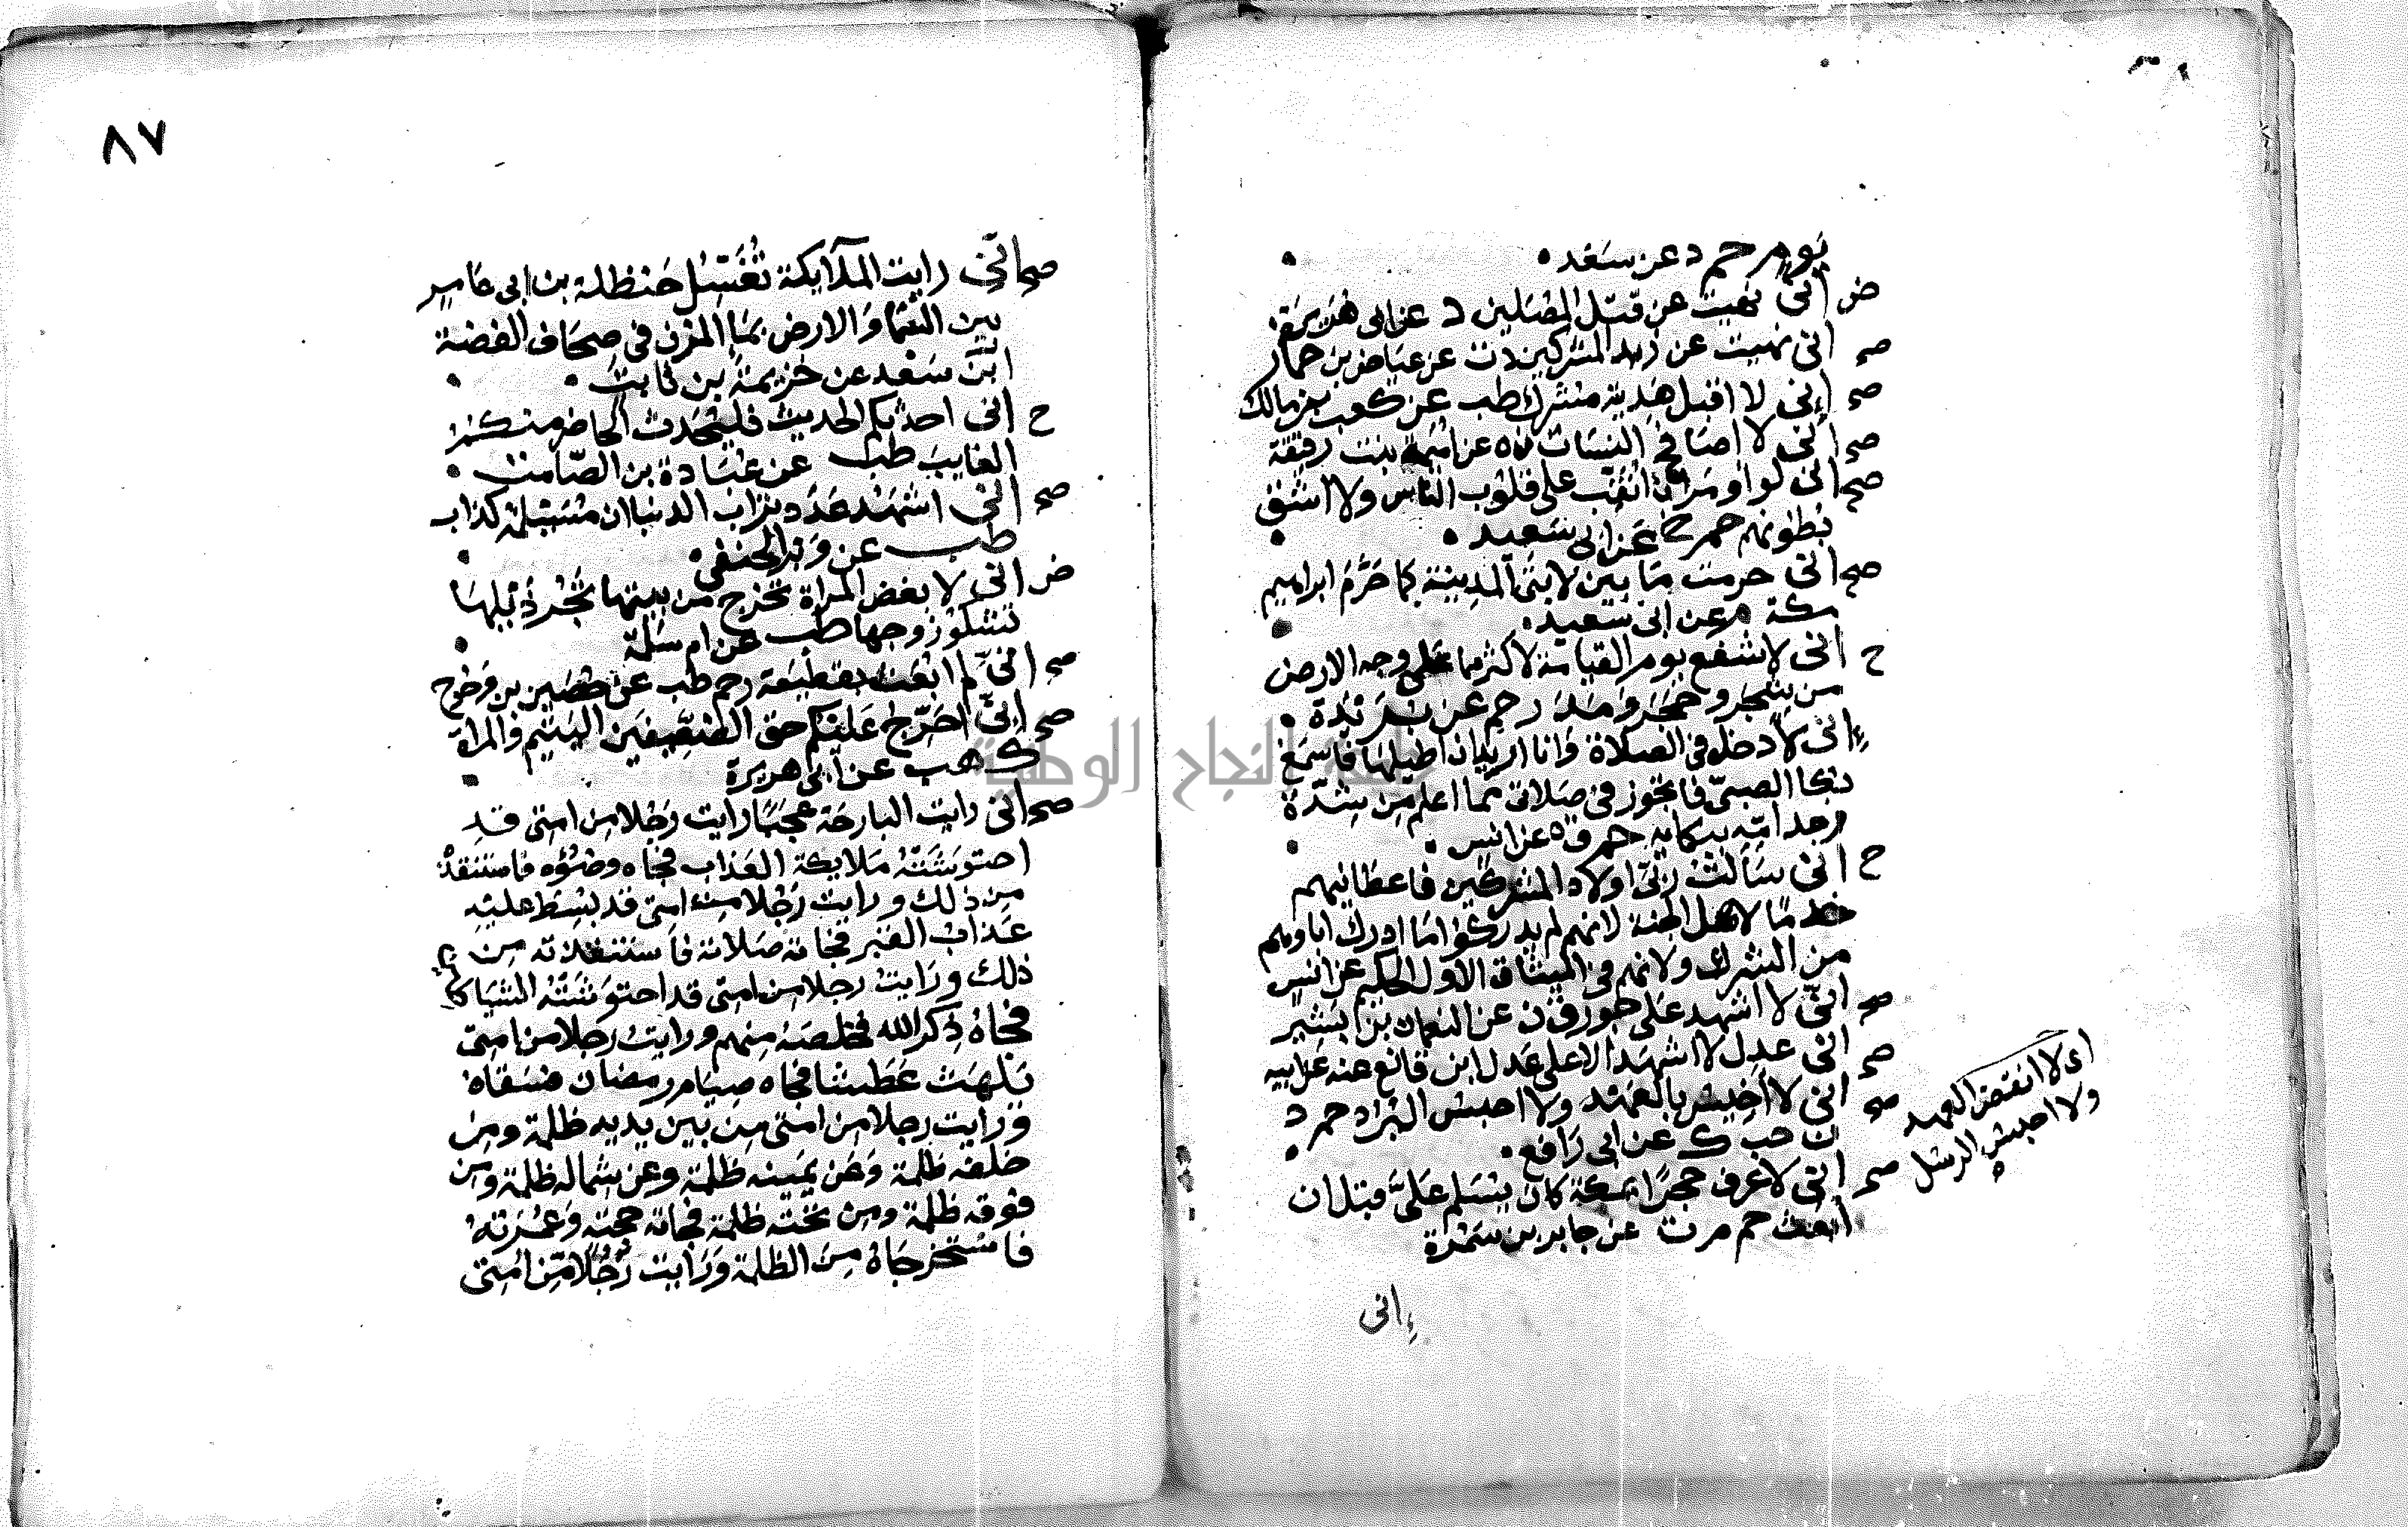 يوم حم د عن سعد
ض انى نهيت عن قتل المصلين د عن ابى هريرة
صح انى نهيت عن زبد المشركين د ت عن عياض بن حمار
صح إنى لا اقبل هدية مشرك طب عن كعب بن مالك
صح إنى لا اصافح النساء ت ن ه عن اميمة بنت رقيقة
صح انى لم اومر ان انقب على قلوب الناس ولا اشق
بطونهم حم خ عن ابى سعيد
صح انى حرمت ما بين لابتى المدينة كما حرم ابراهيم
مكة م عن ابى سعيد
ح انى لاشفع يوم القيامة لاكثر مما على وجه الارض
من شجر وحجر ومدر حم عن بريدة
إنى لادخل فى الصلاة وانا اريد ان اطيلها فاسمع
بكا الصبى فاتجوز فى صلاتى مما اعلم من شدة
وجد امه ببكايه حم ق ه عن انس
ح انى سالت ربى اولاد المشركين فاعطانيهم
خدما لاهل الجنة لانهم لم يدركوا ما ادرك اباوهم
من الشرك ولانهم فى الميثاق الاول الحكيم عن انس
صح انى لا اشهد على جور ق ن عن النعمان بن بشير
صح انى عدل لا اشهد الا على عدل ابن قانع عنه عن ابيه
صح انى لا اخيس بالعهد ولا احبس البرد حم د
ن حب ك عن ابى رافع
صح انى لاعرف حجرا بمكة كان يسلم على قبل ان
ابعث حم م ت عن جابر بن سمرة
اى لا انقض العهد
ولا احبس الرسل
إنى
٨٧
صح انى رايت الملايكة تغسل حنظلة بن ابى عامر
بين السما والارض بما المزن فى صحاف الفضة
ابن سعد عن خزيمة بن ثابت
ح انى احدثكم الحديث فليحدث الحاضر منكم
الغايب طب عن عبادة بن الصامت
صح انى اشهد عدد تراب الدنيا ان مسيلمة كذاب
طب عن وبر الحنفى
ض انى لابغض المراة تخرج من بيتها تجر ذيلها
تشكو زوجها طب عن ام سلمة
صح انى لم ابعث بقطيعة رحم طب عن حصين بن وحوح
صح إنى احرج عليكم حق الضعيفين اليتيم والمراة
ك هب عن ابى هريرة
صح انى رايت البارحة عجبا رايت رجلا من امتى قد
احتوشته ملايكة العذاب فجاه وضوؤه فاستنقذه
من ذلك ورايت رجلا من امتى قد بسط عليه
عذاب القبر فجاته صلاته فاستنقذته من
ذلك ورايت رجلا من امتى قد احتوشته الشياطين
فجاه ذكر الله فخلصه منهم ورايت رجلا من امتى
يلهث عطشا فجاه صيام رمضان فسقاه
ورايت رجلا من امتى من بين يديه ظلمة ومن
خلفه ظلمة وعن يمينه ظلمة وعن شماله ظلمة ومن
فوقه ظلمة ومن تحته ظلمة فجاته حجته وعمرته
فاستخرجاه من الظلمة ورايت رجلا من امتى
جامعة النجاح الوطنية